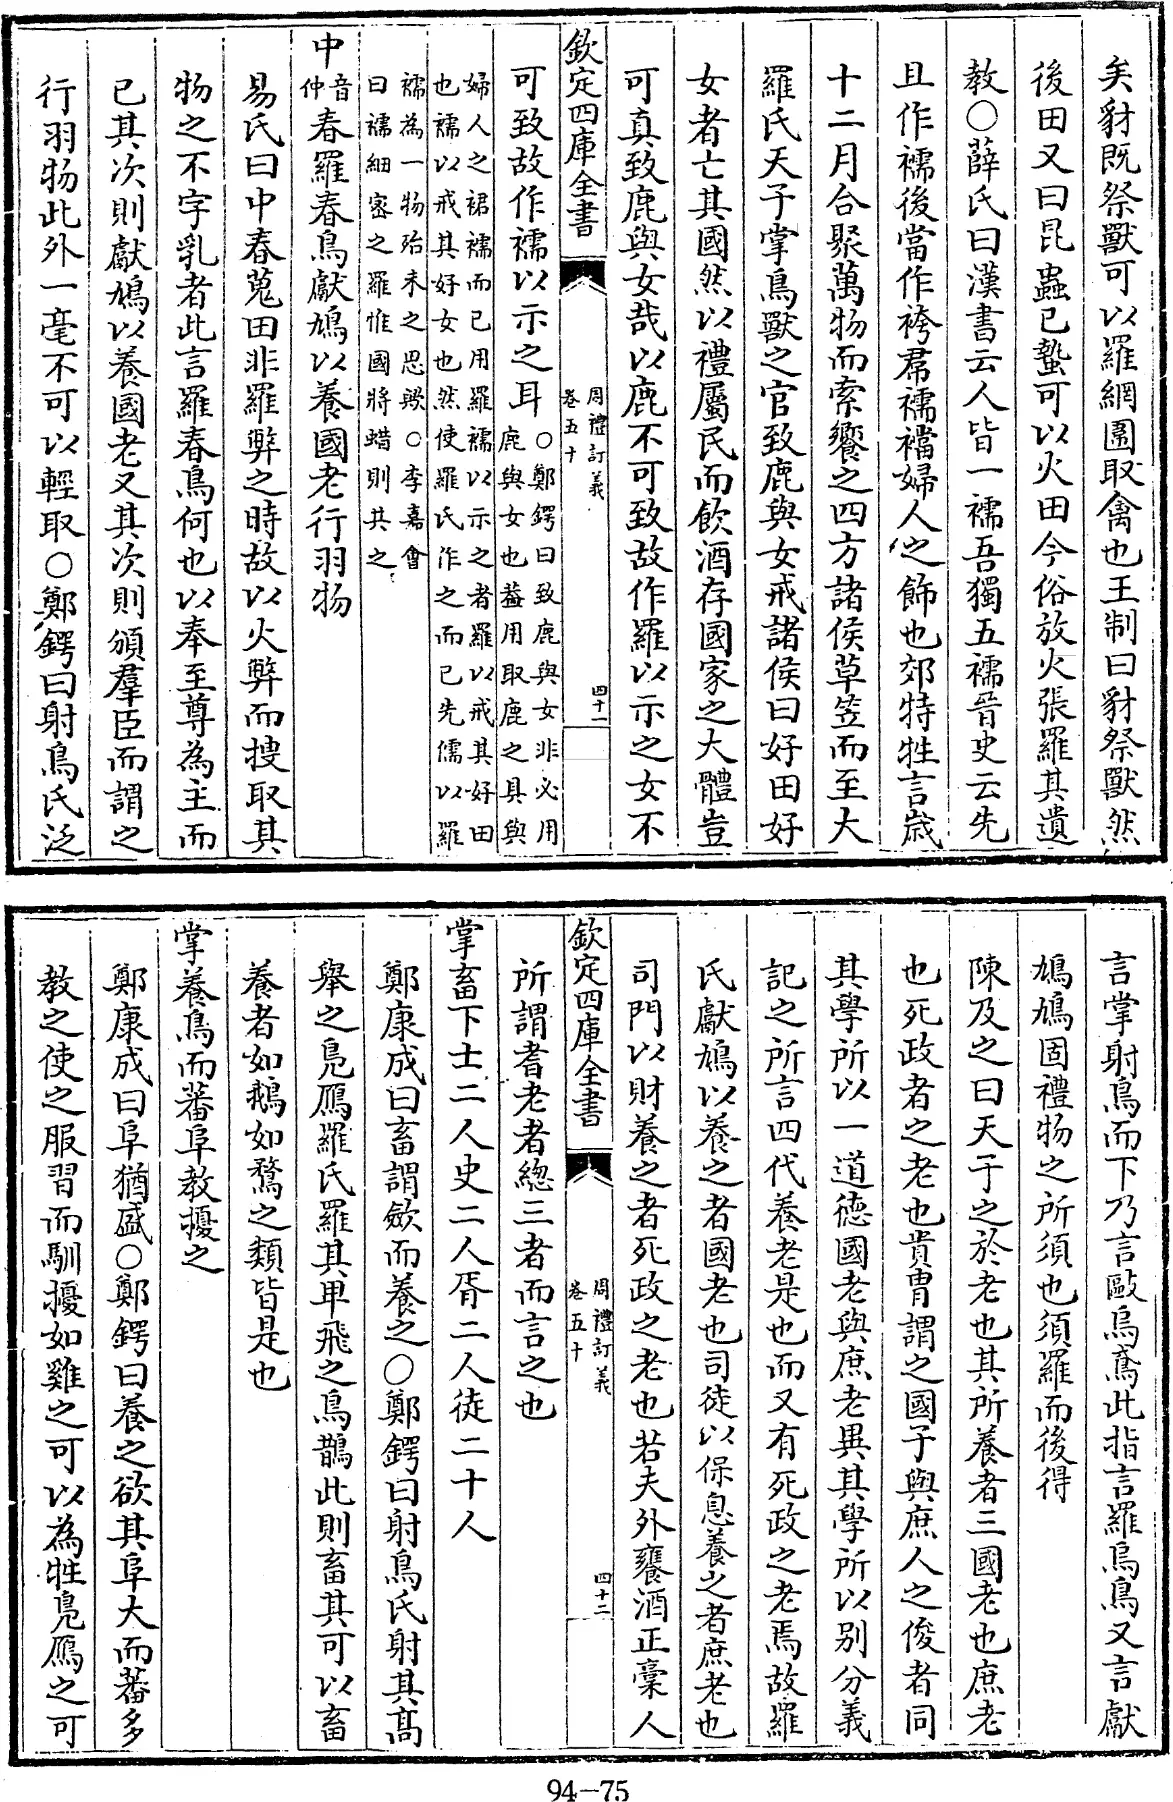 矣豺既祭獸可以羅網圍取禽也王制曰豺祭獸然
後田又曰昆蟲已蟄可以火田今俗放火張羅其遺
教○薛氏曰漢書云人皆一襦吾獨五襦晉史云先
且作襦後當作袴帬襦襠婦人之飾也郊特牲言歲
十二月合聚萬物而索饗之四方諸侯草笠而至大
羅氏天子掌鳥獸之官致鹿與女戒諸侯曰好田好
女者亡其國然以禮屬民而飲酒存國家之大體豈
可真致鹿與女哉以鹿不可致故作羅以示之女不
欽定四庫全書
周禮訂義
卷五十
四十一
可致故作襦以示之耳○鄭鍔曰致鹿與女非必用
鹿與女也葢用取鹿之具與
婦人之裙襦而已用羅襦以示之者羅以戒其好田
也襦以戒其好女也然使羅氏作之而已先儒以羅
襦為一物殆未之思歟○李嘉會
曰襦細密之羅惟國將蜡則共之
中音
仲春羅春鳥獻鳩以養國老行羽物
易氏曰中春蒐田非羅弊之時故以火弊而捜取其
物之不字乳者此言羅春鳥何也以奉至尊為主而
已其次則獻鳩以養國老又其次則頒羣臣而謂之
行羽物此外一毫不可以輕取○鄭鍔曰射鳥氏泛
言掌射鳥而下乃言毆烏鳶此指言羅烏鳥又言獻
鳩鳩固禮物之所須也須羅而後得
陳及之曰天子之於老也其所養者三國老也庶老
也死政者之老也貴胄謂之國子與庶人之俊者同
其學所以一道徳國老與庶老異其學所以别分義
記之所言四代養老是也而又有死政之老焉故羅
氏獻鳩以養之者國老也司徒以保息養之者庶老也
司門以財養之者死政之老也若夫外饔酒正槀人
欽定四庫全書
周禮訂義
卷五十
四十二
所謂耆老者總三者而言之也
掌畜下士二人史二人胥二人徒二十人
鄭康成曰畜謂斂而養之○鄭鍔曰射鳥氏射其高
舉之鳬鴈羅氏羅其卑飛之鳥鵲此則畜其可以畜
養者如鵝如鶩之類皆是也
掌養鳥而蕃阜教擾之
鄭康成曰阜猶盛○鄭鍔曰養之欲其阜大而蕃多
教之使之服習而馴擾如雞之可以為牲鳬鴈之可
94-75